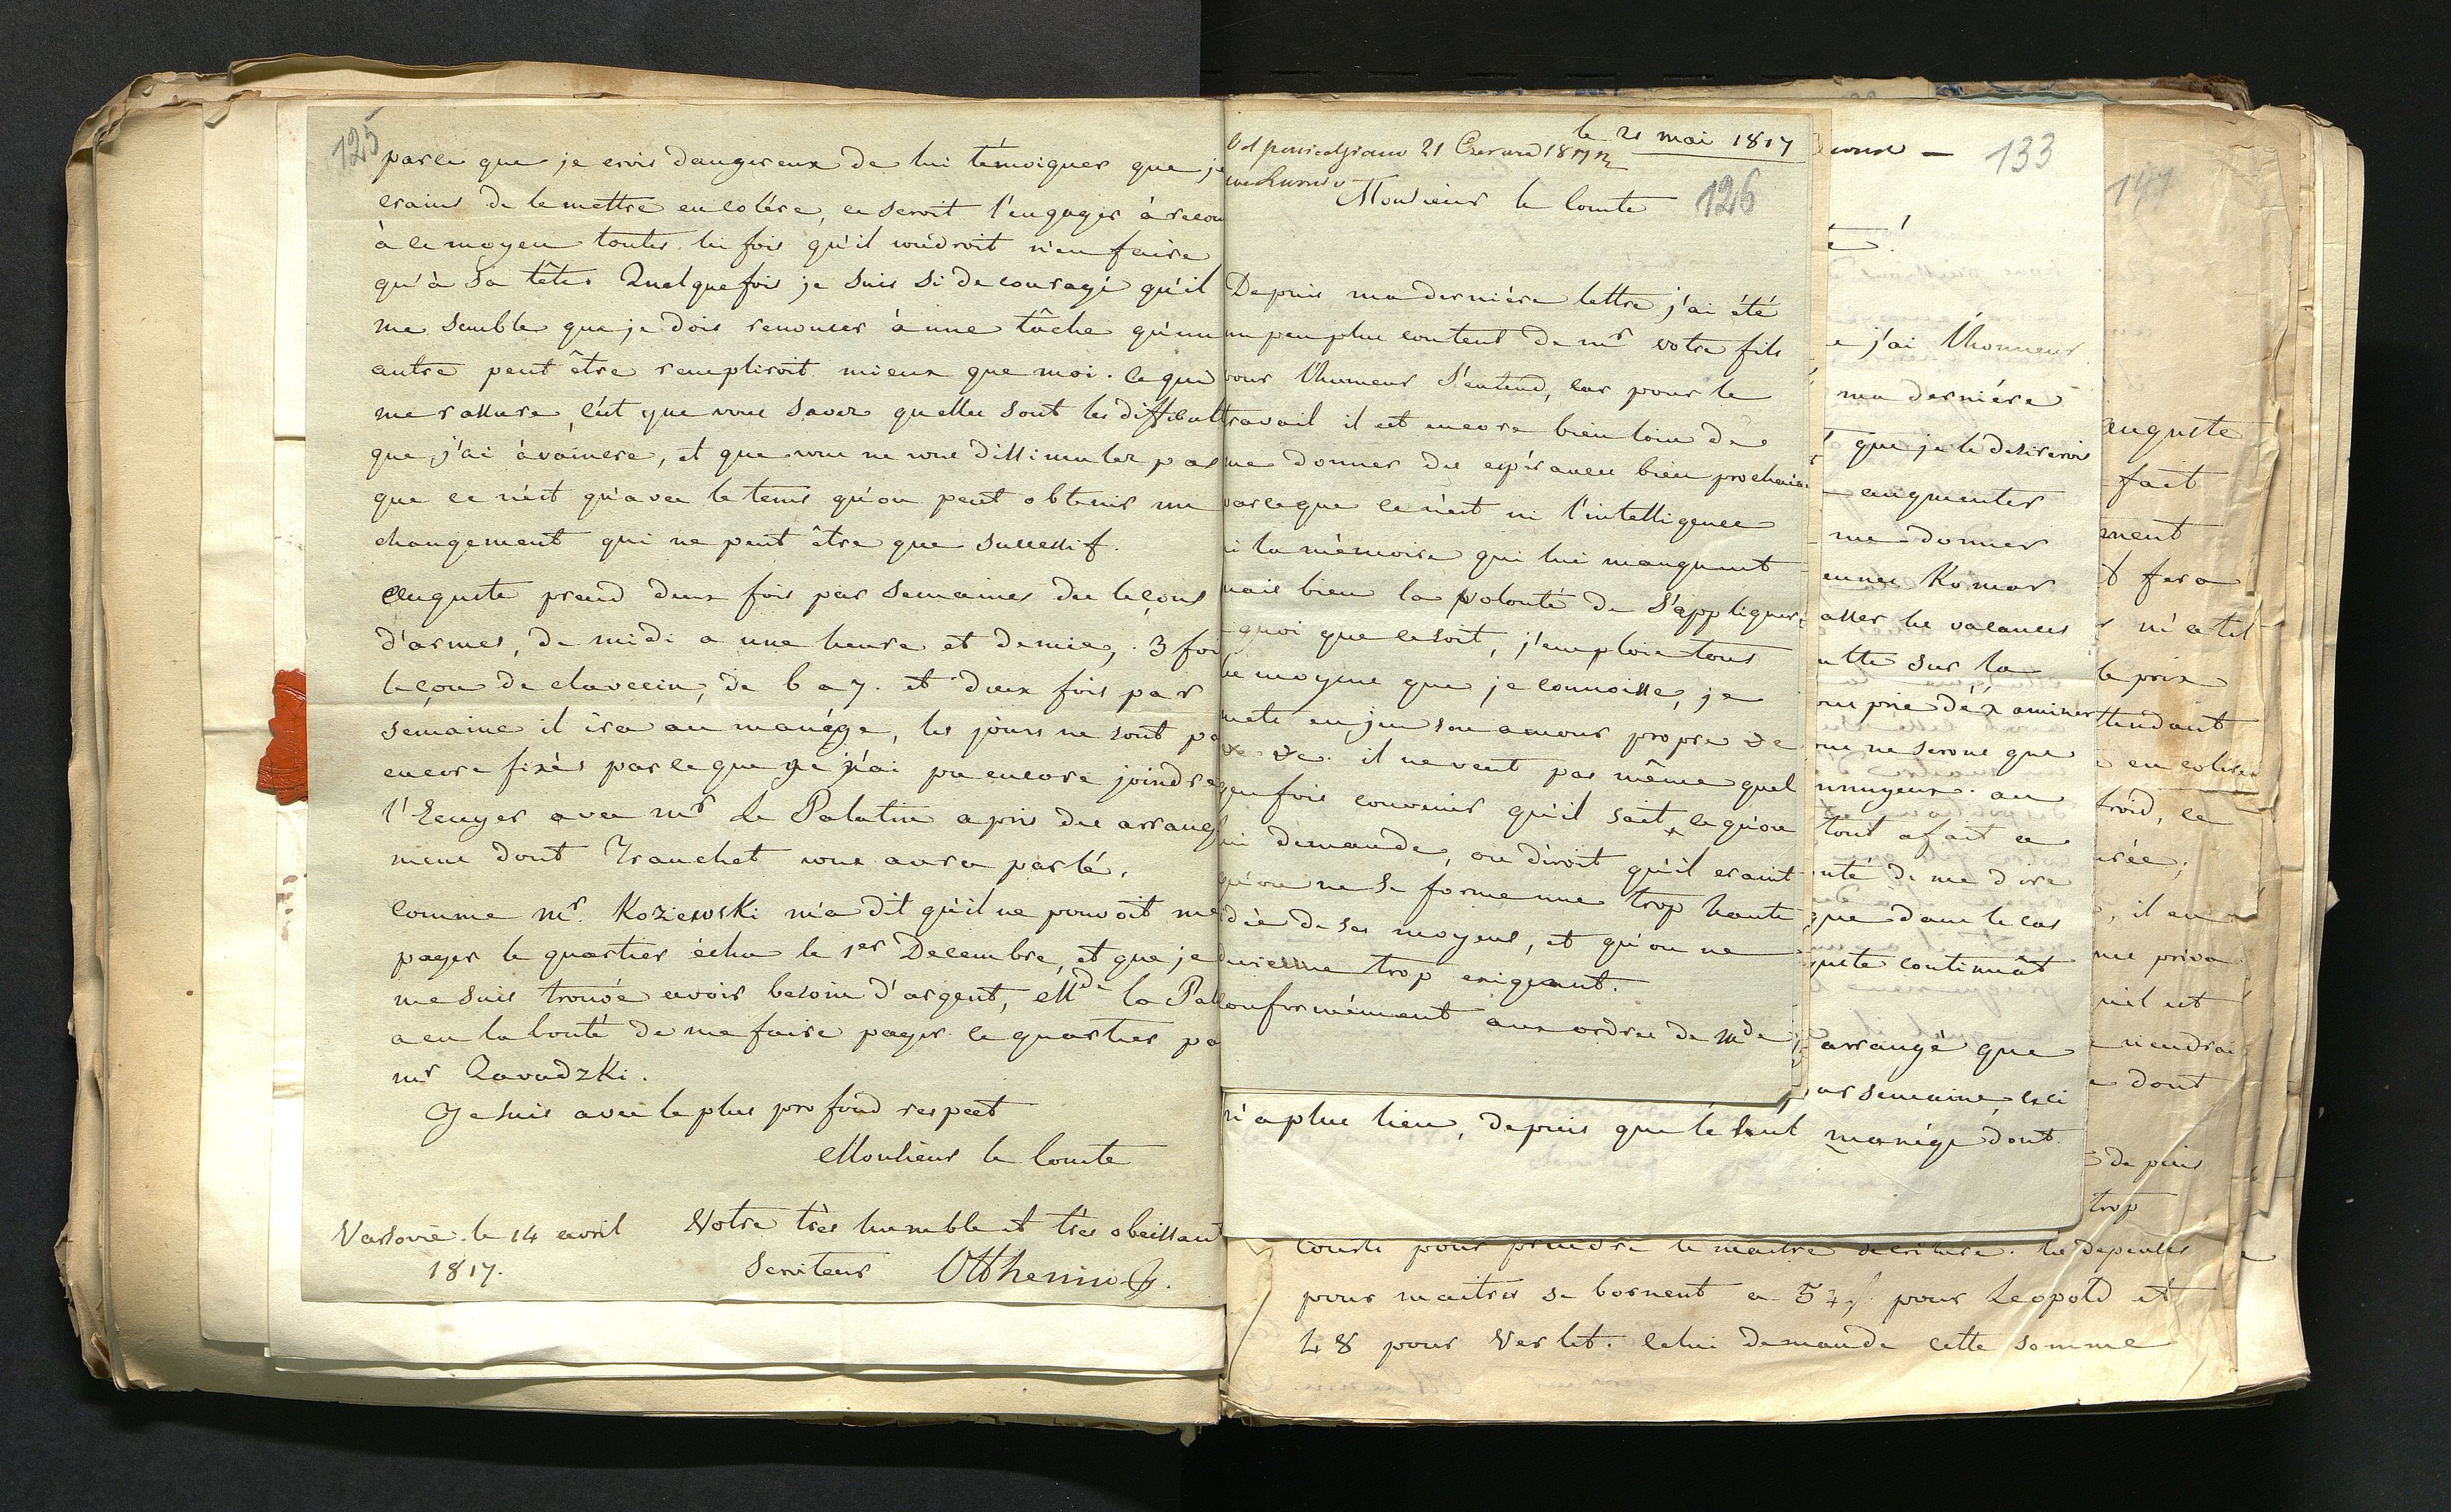 125
parce que je crois dangereux de lui témoigner que je
crains de le mettre en colére, ce seroit l'engager à recou
à ce moyen toutes les fois qu'il voudroit n'en faire
qu'à sa tête. Quelquefois je suis si decouragé qu'il
me semble que je dois renoncer à une tâche qu'un
autre peut être rempliroit mieux que moi. ce qui
me rassure, c'est que vous savez quelles sont les difficult
que j'ai à vaincre, et que vous ne vous dissimulez pas
que ce n'est qu'avec le tems qu'on peut obtenir un
changement qui ne peut être que successif.
Auguste prend deux fois par semaines des leçons
d'armes, de midi a une heure et demie, 3 foi
leçon de clavecin, de 6 a 7. et deux fois par
semaine il ira au manége, les jours ne sont pa
encore fixés parceque je n'ai pu encore joindre
l'Ecuyer avec mr le Palatin a pris des arrang
mens dont Tranchet vous aura parlé.
comme mr. Koziewski m'a dit qu'il ne pouvoit me
payer le quartier échu le 1er Decembre, et que je
me suis trouvé avoir besoin d'argent, Mde la Pal
a eu la bonté de me faire payer ce quartier pa
mr Zavadzki.
Je suis avec le plus profond respect
Monsieur le Comte
Votre très humble et très obeissant
Varsovie le 14 avril
1817.
Serviteur Otthenin J.
le 21 mai 1817
21 Czerwca 1817
126
Monsieur le Comte
Depuis ma derniére lettre j'ai été
un peu plus content de mr votre fils
pour l'humeur s'entend, car pour le
travail il est encore bien loin de
me donner des espérances bien prochaine
parceque ce n'est ni l'intelligence
ni la mémoire qui lui manquent
mais bien la volonté de s'appliquer.
quoi que ce soit, j'emploie tous
les moyens que je connoisse, je
mets en jeu son amour propre &c
&c &c. il ne veut pas même quel
quefois convenir qu'il sait ce qu'on
lui demande, on diroit qu'il craint
qu'on ne se forme une trop haute
idée de ses moyens, et qu'on ne
devienne trop exigeant.
Conformément aux ordres de mde
133
e j'ai l'honneur
ma derniére
que je le desirerois
augmenter
me donner
Komar
asser les vacances
ulte sur la
ous prie d'éxaminer
ous ne serons que
nnuyeux. au
tout afait a
nté de me dire
que dans le cas
guste continuât
arrangé que
par semaine, ceci
n'a plus lieu, depuis que le seul manége dont
147
auguste
fait
ment
t fera
le prix
tendant
en colére
froid, ce
urée,
, il en
me priva
qu'il est
e viendrai
e dont
depuis
trop
courts pour prendre le maitre decriture. les depenses
pour maitres se bornent a 57 pour Leopold et
48 pour Verlet. celui demande cette somme